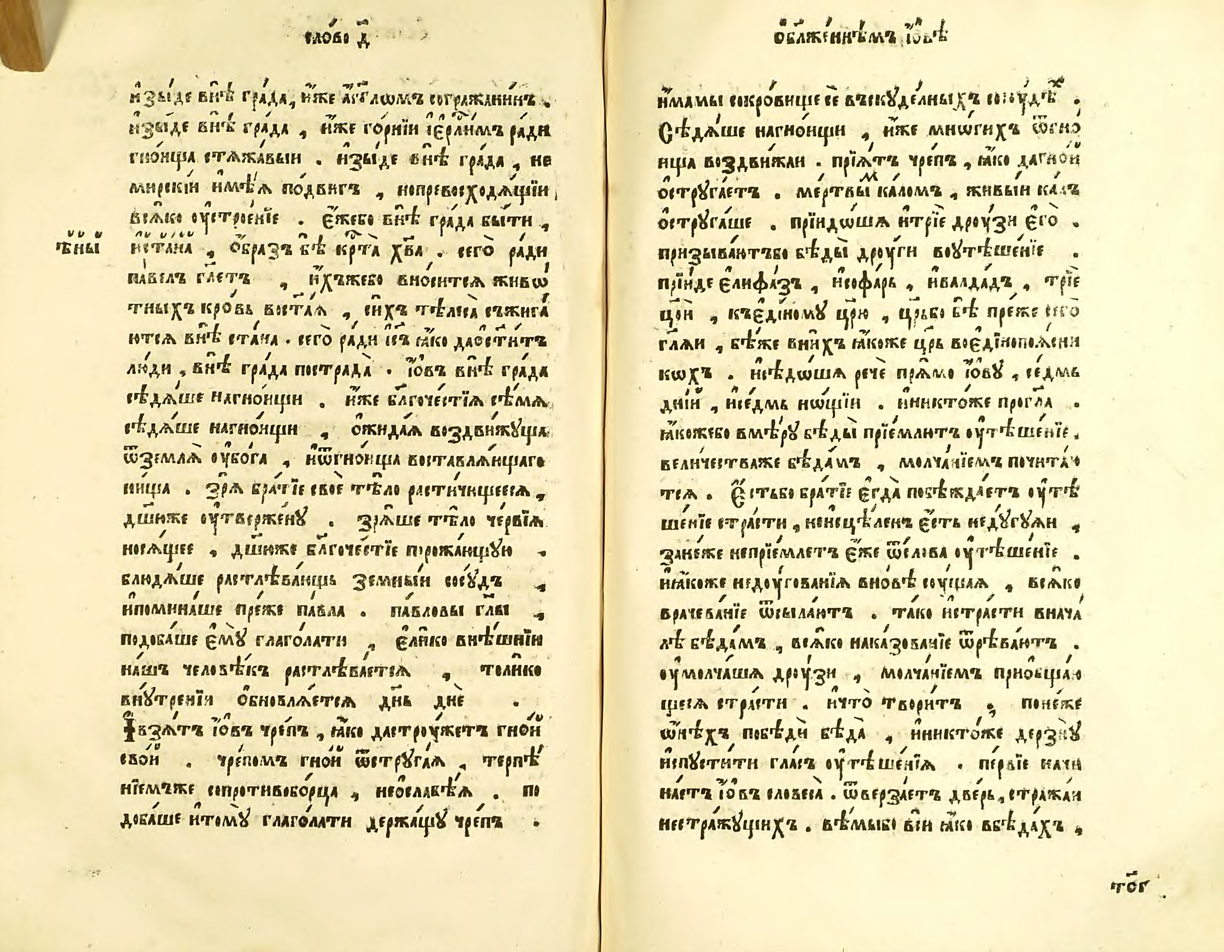 сло́во д҃
и҆зы́де внѣ̀ гра́да, и҆́же а҆́гг҃лѡмъ согражанинъ .
и҆зы́де внѣ̀ гра́да , и҆́же го́рнїи і҆ерⷭ҇ли́мъ ради
гно́ища стѧжа́выи . и҆зы́де внѣ̀ гра́да , не
мирскі́и и҆мѣ́ѧ по́двигъ , нопревосходѧ́щїи
всѧ́ко оу҆строе́нїе . є҆́жебо внѣ̀ гра́да бы́ти ,
и҆стана̀ , ѻ҆́бразъ бѣ̀ крⷭ҇та̀ хв҃а . сего̀ ради
па́велъ гл҃етъ , и҆́хъжебо вно́ситсѧ живѡ́
тныхъ кро́вь востаѧ̀ , си́хъ тѣлеса̀ съжига́
ютсѧ внѣ̀ ста́на . сего̀ ра́ди і҆с҃ъ ꙗ҆́ко даѡс҃ти́тъ
лю́ди , внѣ̀ гра́да пострада̀ . і҆́ѡвъ внѣ̀ гра́да
сѣдѧ́ше нагно́ищи . и҆́же бл҃гоче́стїѧ сѣ́мѧ
сѣдѧ́ше нагно́ищи , ѻ҆жида́ѧ воздви́жуща
ѿземлѧ̀ оу҆бо́га , и҆ѿгно́ища воставлѧ́ющаго
ни́ща . зрѧ̀ бра́тїе своѐ тѣ́ло растичи́щееѧ ,
дш҃и́же оу҆тверже́ну . зрѧ́ше тѣ́ло че́рвїѧ
носѧ́щее , дш҃и́же бл҃гоче́стїе поро́жающую
блюдѧ́ше растлѣва́ющь земны́и сосу́дъ ,
и҆помина́ше пре́же па́вла . па́вловы гл҃ы ,
подоба́ше є҆мꙋ̀ глаго́лати , є҆ли́ко внѣ́шнїи
на́шъ человѣ́къ растлѣва́етсѧ , толи́ко
вну́тренїи ѻ҆бновлѧ́етсѧ дн҃ь дн҃ѐ .
І҆взѧ́тъ і҆́ѡвъ чре́пъ , ꙗ҆́ко достру́жетъ гно́и
сво́и . чре́помъ гно́и ѿструга́ѧ , терпѣ́
нїемъже сопротивобо́рца , неѡ҆слабѣ́ѧ . по
доба́ше и҆тому̀ глаго́лати держа́щу чре́пъ .
ѻ҆бл҃же́ннѣмъ і҆́ѡвѣ
и҆́мамы сокро́вище сѐ въскуде́льныхъ сосу́дѣхъ .
Сѣдѧ́ше нагно́ищи , и҆́же мнѡ́гихъ ѿгно́
ища воздвижаи . прїѧ́тъ чре́пъ , ꙗ҆́ко дагно́и
ѻ҆струга́етъ . ме́ртвымъ ка́ломъ , живы́и ка́лъ
ѻ҆струга́ше . прїидо́шѧ и҆трїѐ дро́узи є҆го̀ .
призыва́ютъбо бѣды̀ дро́уги воутѣше́нїе .
прїи́де є҆лифа́зъ , и҆софа́рь , и҆валда́дъ , трїѐ
цр҃їи , къе҆ди́ному цр҃ю , цр҃ь́бо бѣ̀ пре́же сего̀
гл҃ѧи , бѣ́же вни́хъ ꙗ҆́коже цр҃ь воє҆ди́нопоѧсни
кѡхъ . и҆сѣдо́шѧ речѐ прѧ́мо і҆́ѡву , се́дмь
дні́и , и҆се́дмь нощі́и . и҆никто́же прогл҃а .
ꙗ҆́кожебо вмѣ́ру бѣды̀ прїе́млютъ оу҆тѣше́нїе .
вели́чествѧже бѣда́мъ , молча́нїемъ почита́ю
тсѧ . Є҆́стьбо бра́тїе є҆гда̀ побѣжда́етъ оу҆тѣ
ше́нїе стра́сти , неи҆сцѣ́ленъ є҆́сть неду́гуѧи ,
зане́же непрїе́млетъ є҆́же ѿсло́ва оу҆тѣше́нїе .
и҆ꙗ҆́коже недоугова́нїѧ вно́вѣ соу́щаѧ , всѧ́ко
врачева́нїе ѿсыла́ютъ . та́ко и҆стра́сти внача́
лѣ бѣда́мъ , всѧ́ко наказова́нїе ѿрѣва́ютъ .
оу҆молча́шѧ дро́узи , молча́нїемъ приѻбща́ю
щесѧ стра́сти . и҆что̀ твори́тъ , поне́же
ѡ҆нѣ́хъ побѣдѝ бѣда̀ , и҆никто́же дерзну̀
и҆спусти́ти гла́съ оу҆тѣше́нїѧ . пе́рвїе начи
на́етъ і҆́ѡвъ словеса̀ . ѿверза́етъ две́рь, стра́жаи
нестра́жущихъ . вѣ́мыбо всѝ ꙗ҆́ко вбѣда́хъ ,
то́г